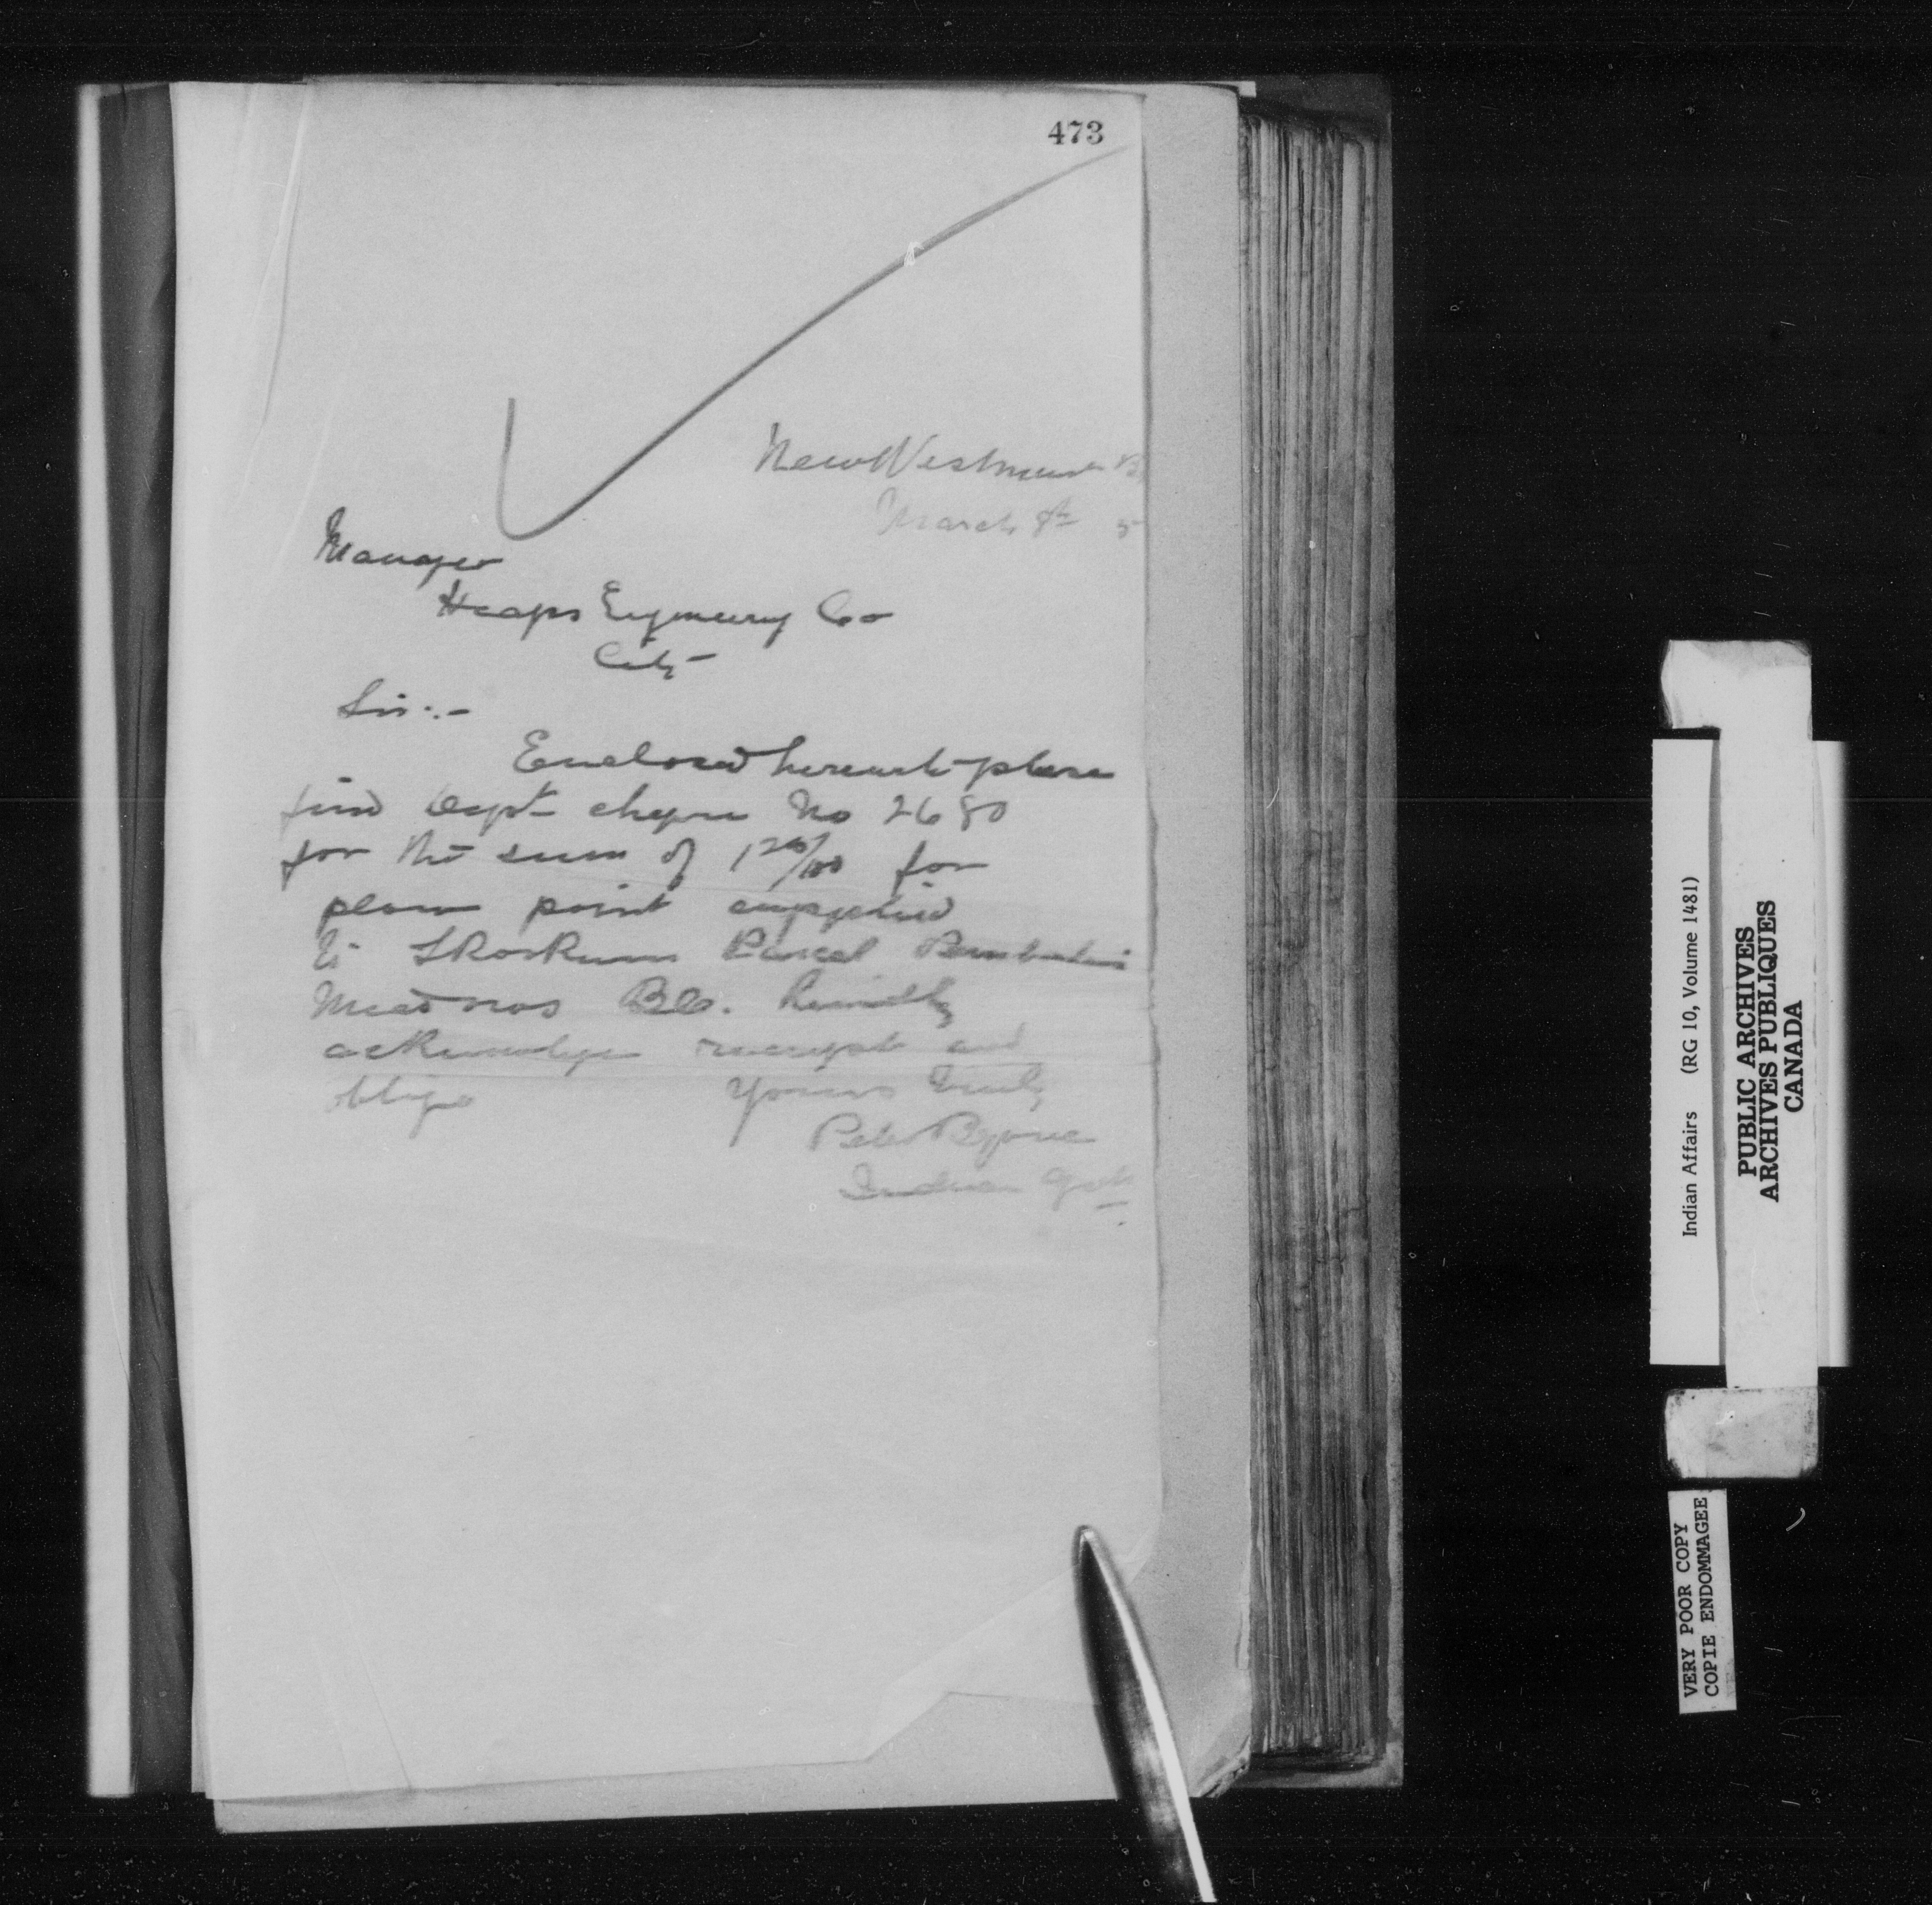 473
New Westminster B
March 8th 5
Manager
Heaps Engineering Co
City
Sir:-
Enclosed herewith please
find Dept cheque No 2680
for the sum of 1 20/100 for
plow point supplied
to Skookum Pascal Pemberton
Meadows B.C. Kindly
acknowledge receipt and
oblige Yours truly
Peter Byrne
Indian Agt.
Indian Affairs (RG 10, Volume 1481)
PUBLIC ARCHIVES
ARCHIVES PUBLIQUES
CANADA
VERY POOR COPY
COPIE ENDOMMAGEE